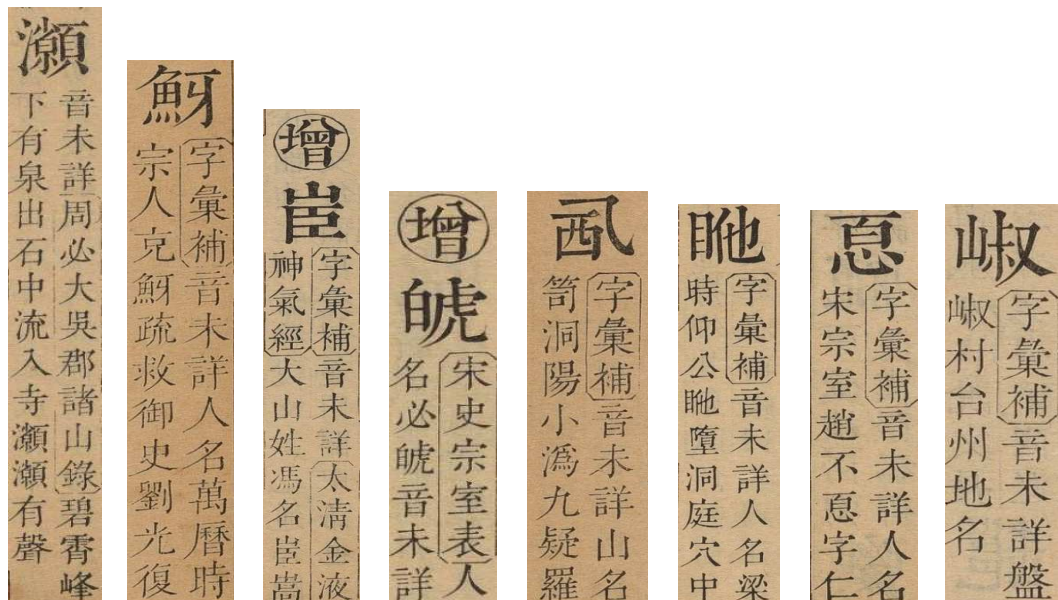 音未詳周必大吳郡諸山錄碧霄峰
下有泉出石中流入寺有聲
字彙補音未詳人名萬曆時
宗人克疏救御史劉光復
增
字彙補音未詳太清金液
神氣經大山姓馮名嵓
增
宋史宗室表人
名必音未詳
字彙補音未詳山名
笥洞陽小溈九疑羅
字彙補音未詳人名梁
時仰公墮洞庭穴中
字彙補音未詳人名
宋宗室趙不字仁
字彙補音未詳盤
村台州地名